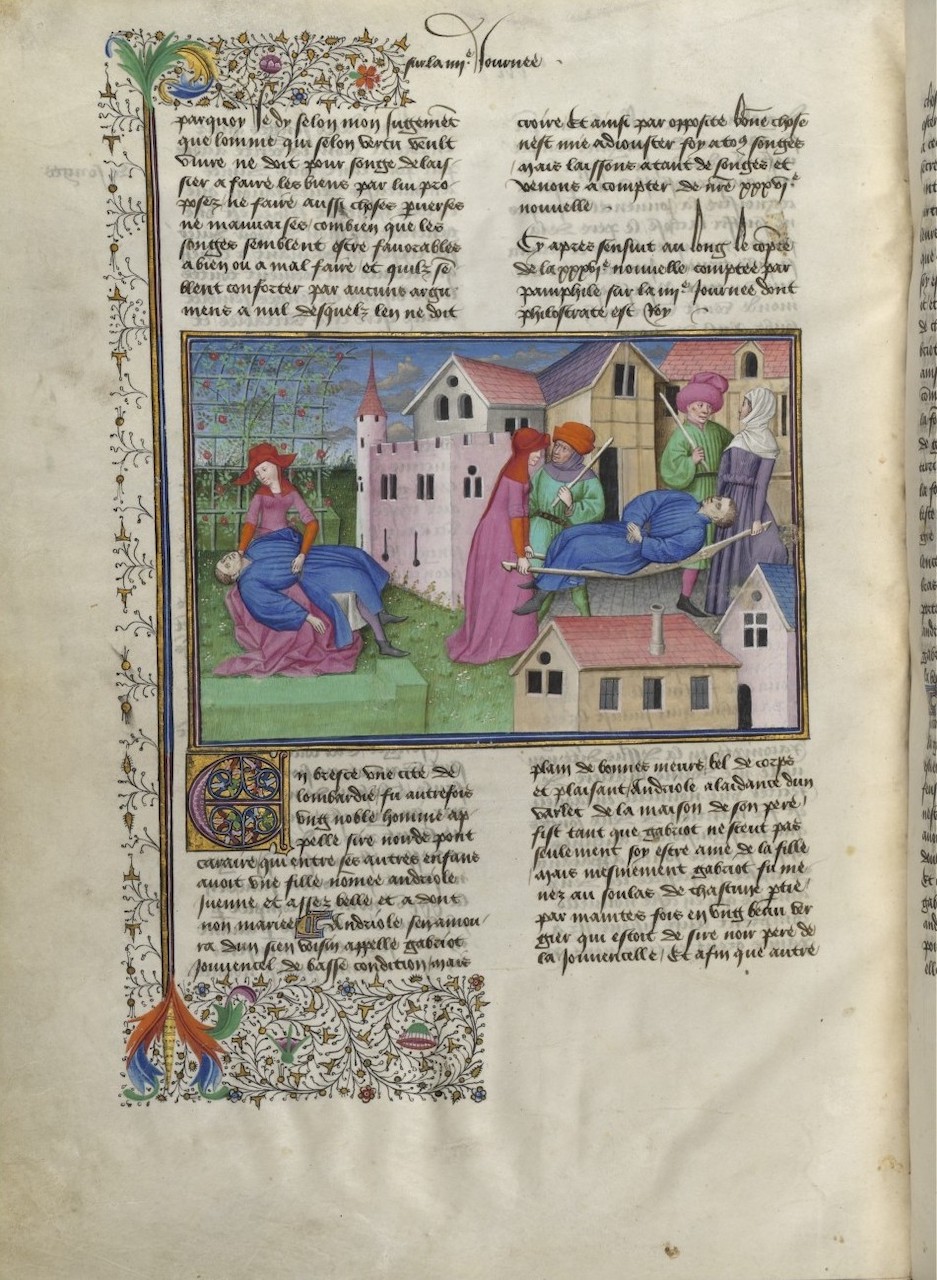 sur la iiii.e Journee
parquoy Je dy selon mon Jugemẽt
que lomme qui selon vertu veult
viure ne doit pour songe delais
sier a faire les biens par luy pro
posez ne faire aussi choses puerses
ne mauuaises combien que les
songes semblent estre fauorables
a bien ou a mal faire et quilz sẽ
blent conforter par aucuns argu
mens a nul desquelz len ne doit
croire Et ainsi par opposite bõne chose
nest mie adiouster foy a to9 songes
mais laissons atant de songes et
venons a compter de nr̃e xxxvi.e
nouuelle
Cy apres sensuit au long le compte
de la xxxvi.e nouuelle comptee par
pamphile sur la iiii.e Journee dont
philostrate est Roy
En bresce vne cite de
lombardie fu autrefois
vng noble homme ap
pelle sire noir de pont
caraire qui entre ses autres enfans
auoit vne fille nõmee andriole
Juenne et assez belle et adont
non mariee Andriole senamou
ra dun sien voisin appelle gabriot
Jouuencel de basse condition mais
plain de bonnes meurs bel de corps
et plaisant Andriole a laidance dun
varlet de la maison de son pere
fist tant que gabriot ne sceut pas
seulement soy estre ame de la fille
mais mesmement gabriot fu me
nez au soulas de chascune ptie
par maintes fois en vng beau ver
gier qui estoit de sire noir pere de
la Jouuencelle Et afin que autre